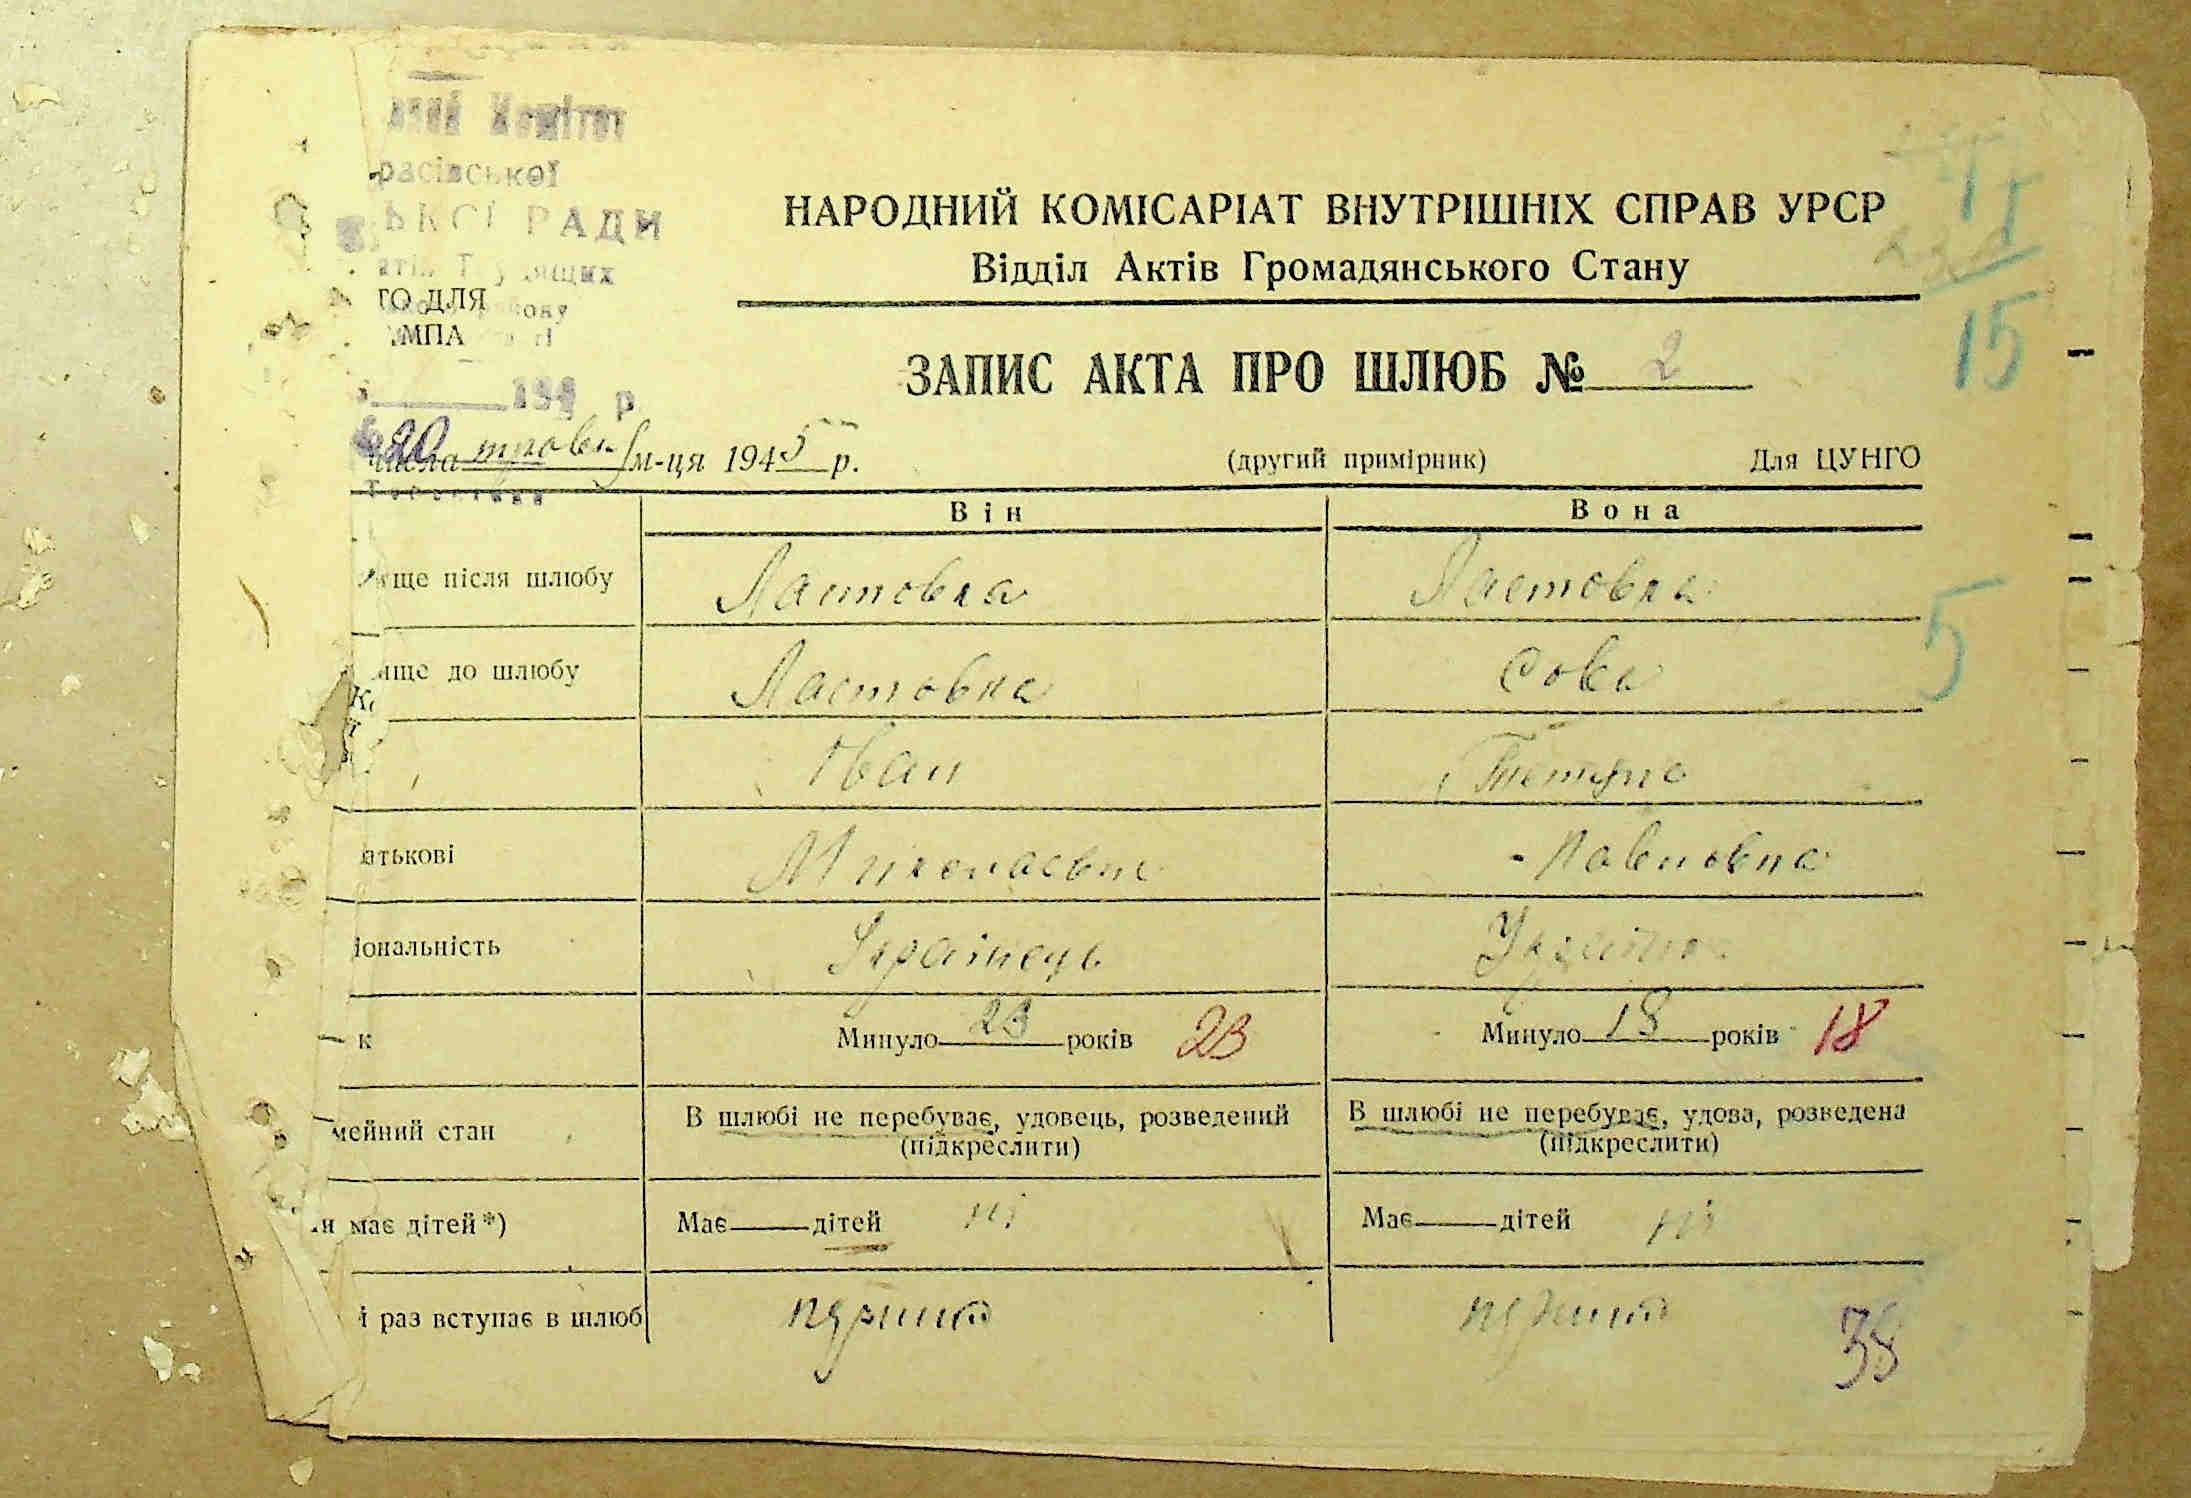 расівської
РАДИ
ГО ДЛЯ
МПА
194 р
НАРОДНИЙ КОМІСАРІАТ ВНУТРІШНІХ СПРАВ УРСР
Відділ Актів Громадянського Стану
15
ЗАПИС АКТА ПРО ШЛЮБ № 2
20 числа травня м-ця 1945 р.
(другий примірник) Для ЦУНГО
Він Вона
ще після шлюбу Ластовка Ластовка
5
ще до шлюбу Ластовка Сова
Іван Тетяна
атькові Миколаєвич Павловна
іональність Українець Українка
к Минуло 23 років 23 Минуло 18 років 18
мейний стан В шлюбі не перебуває, удовець, розведений (підкреслити) В шлюбі не перебуває, удова, розведена (підкреслити)
и має дітей*) Має дітей ні Має дітей ні
й раз вступає в шлюб перший перший
38